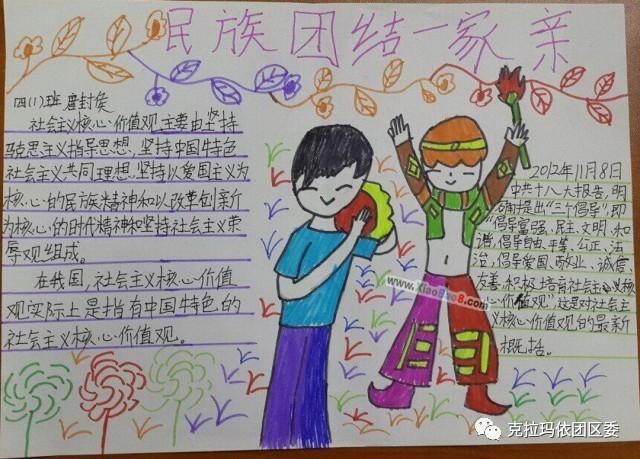 民族团结一家亲
四(1)班 唐封侯
社会主义核心价值观主要由坚持
马克思主义指导思想，坚持中国特色
社会主义共同理想，坚持以爱国主义为
核心的民族精神和以改革创新
为核心的时代精神和坚持社会主义荣
辱观组成。
在我国，社会主义核心价值
观实际上是指有中国特色的
社会主义核心价值观。
2012年11月8日
中共十八大报告，明
确提出"三个倡导"，即
"倡导富强、民主、文明、和
谐，倡导自由、平等、公正、法
治，倡导爱国、敬业、诚信、
友善，积极培育社会主义核
心价值观"，这是对社会主
义核心价值观的最新
概括。
www.XiaoBao8.com
克拉玛依团区委